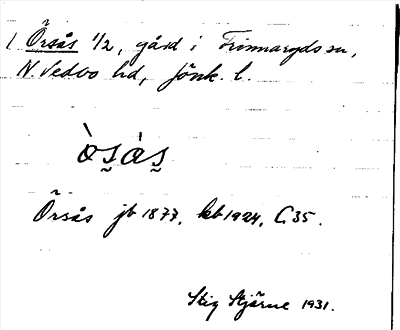 1 Örsås 1/2, gård i Frinnaryds sn,
N. Vedbo hd, Jönk. l.
òs̰às̰
Örsås jb 1877, kb 1924, C. 35.
Stig Stjärne 1931.